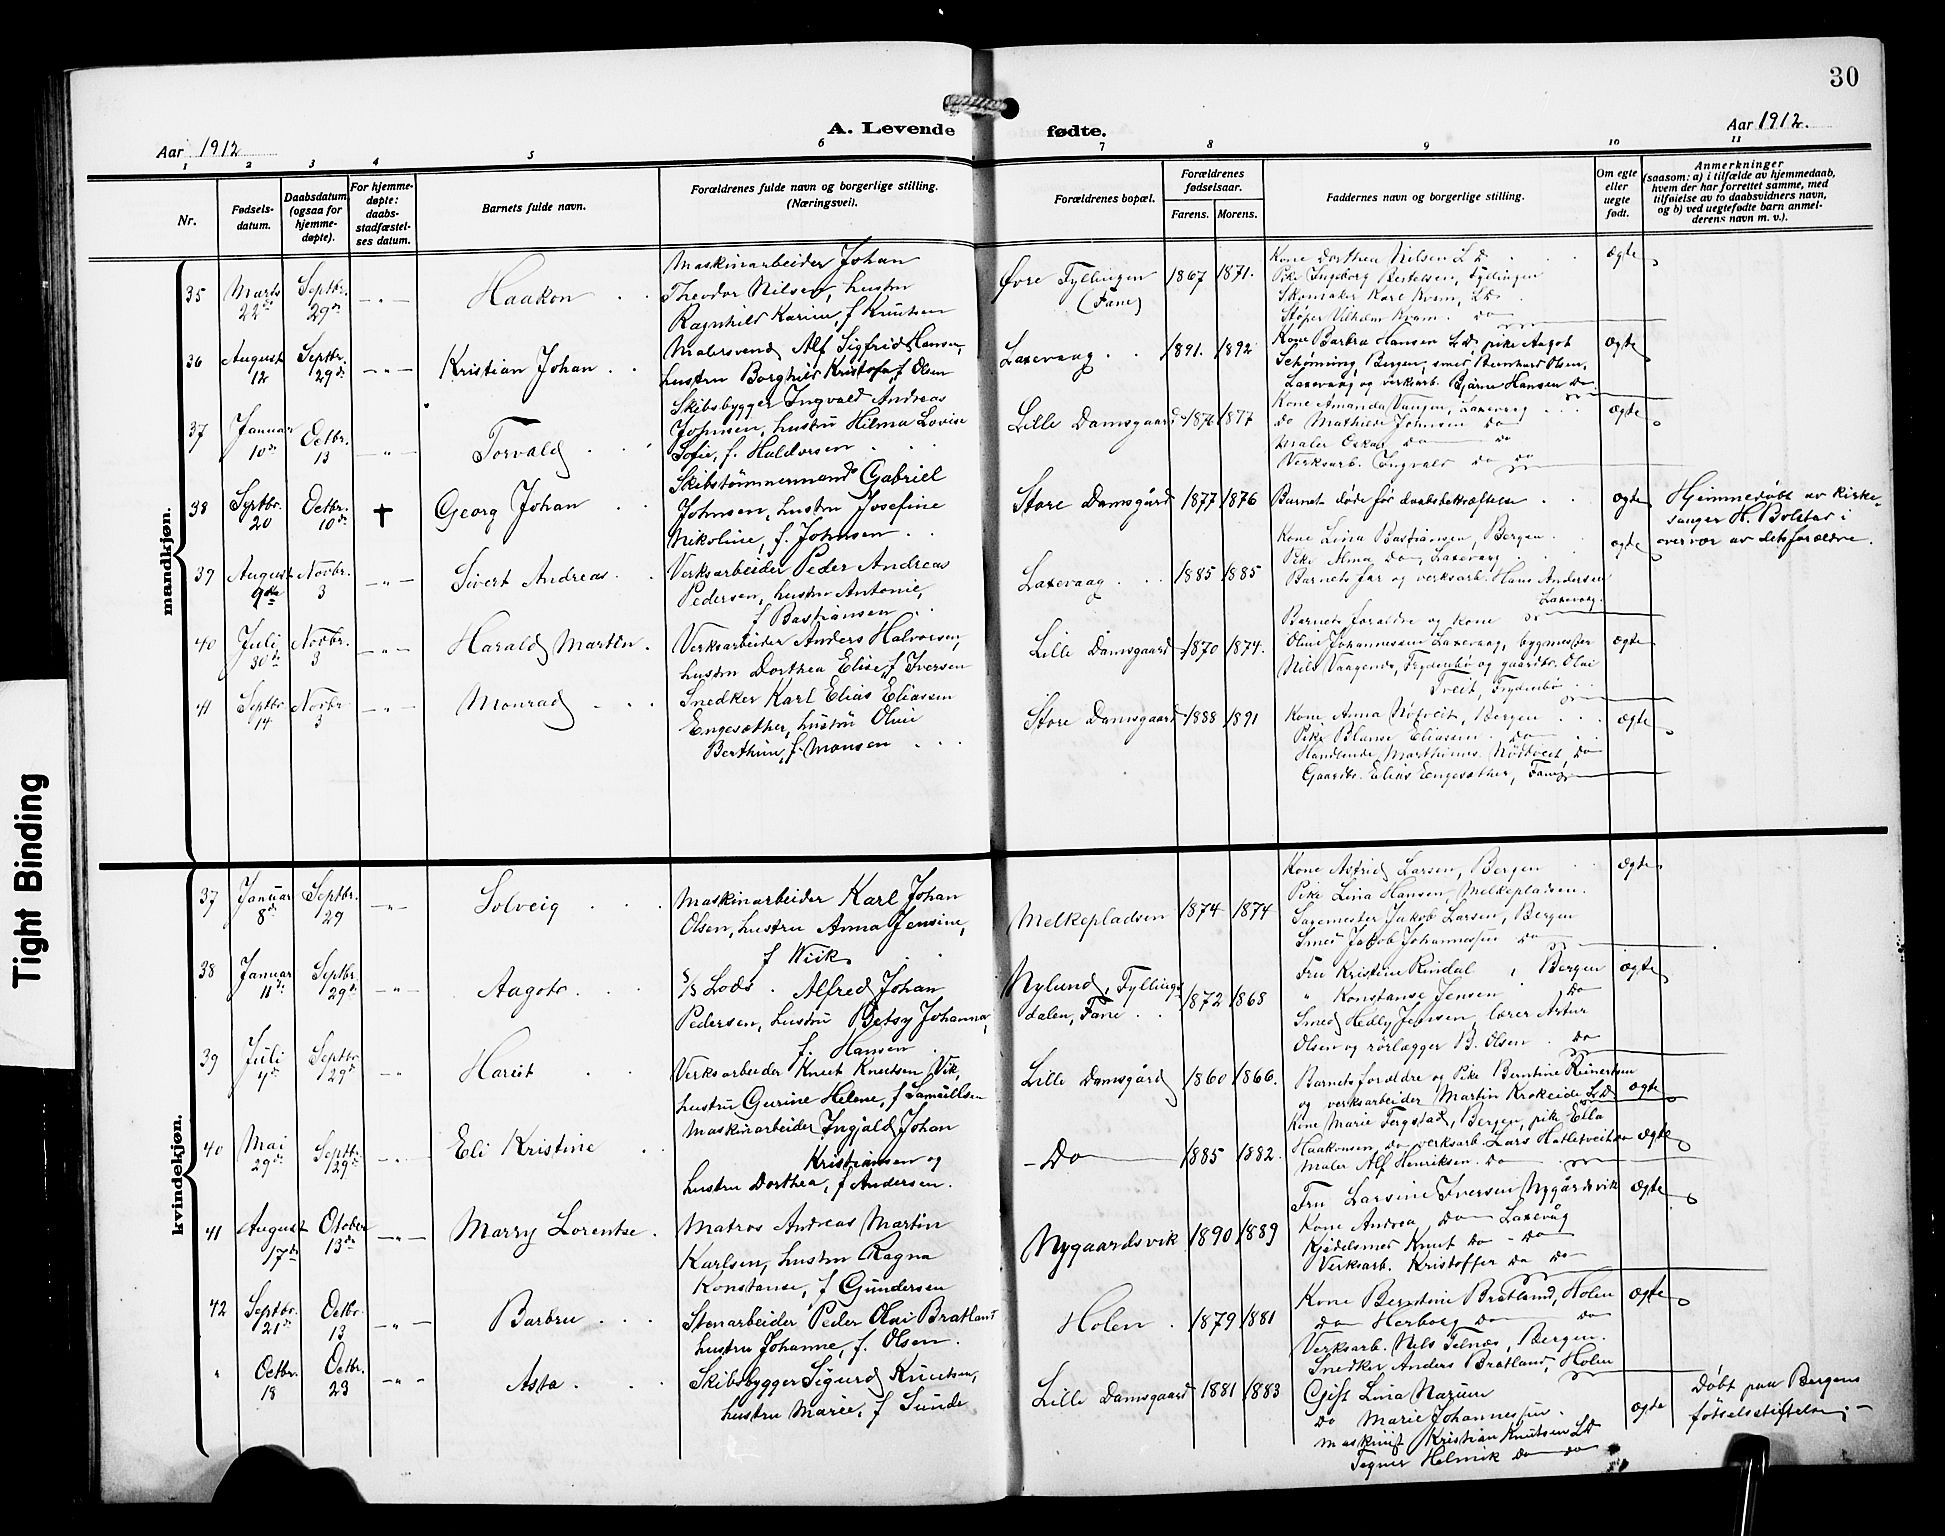 30
A. Levende fødte.
Aar 1912
Aar 1912.
1 2 3 4 5 6 7 8 9 10 11
Nr.
Fødsels-
datum.
Daabsdatum
(ogsaa for
hjemme-
døpte).
For hjemme-
døpte:
daabs-
stadfæstel-
ses datum.
Barnets fulde navn.
Forældrenes fulde navn og borgerlige stilling.
(Næringsvei).
Forældrenes bopæl.
Forældrenes
fødselsaar.
Farens. Morens.
Faddernes navn og borgerlige stilling.
Om egte
eller
uegte
født.
Anmerkninger
(saasom: a) i tilfælde av hjemmedaab,
hvem der har forrettet samme, med
tilføielse av to daabsvidners navn,
og b) ved uegtefødte barn anmel-
derens navn m. v.).
mandkjøn.
35
Marts
22de
Septbr.
29de
Haakon
Maskinarbeider Johan
Theodor Nilsen, hustru
Ragnhild Karine, f Knutsen
Øvre Fyllingen
(Fane)
1867 1871.
Kone Dorthea Nilsen L D.
Pike Ingeborg Bertelsen, Fyllingen
Skomaker Karl Kvam, L D.
Støper Vilhelm Kvam. do
ægte
36
August
12
Septbr.
29de
Kristian Johan
Malersvend Alf Sigfred Hansen,
hustru Borghild Kristofa, f Olsen
Laxevaag
1891. 1892
Kone Barbra Hansen L D, pike Aagot
Schønning, Bergen, smed Bernhard Olsen,
Laxevaag og verksarb. Bjarne Hansen do.
ægte
37
Januar
10de
Octbr.
13
Torvald
Skibsbygger Ingvald Andreas
Johnsen, hustru Hilma Lovise
Sofie, f. Haldorsen
Lille Damsgaard
1876 1877
Kone Amanda Vangen, Laxevaag
do Mathilde Johnsen do
Maler Oskar do do
Verksarb. Ingvald do do
ægte
38
Septbr.
20
Octbr.
10de
†
Georg Johan
Skibstømmermand Gabriel
Johnsen, hustru Josefine
Nikoline, f. Johnsen
Store Damsgård
1877 1876
Barnet døde før daabsbekræftelse
ægte
Hjemmedøbt av kirke-
sanger H. Bolstad i
overvær av dets forældre.
39
August
9de
Novbr.
3
Sivert Andreas
Verksarbeider Peder Andreas
Pedersen, hustru Antonie,
f Bastiansen
Laxevaag
1885 1885
Kone Lina Bastiansen, Bergen
Pike Alma do, Laxevaag
Barnets far og verksarb. Hans Andersen
Laxevaag.
ægte
40
Juli
30te
Novbr.
3
Harald Martin
Verksarbeider Anders Halvorsen,
hustru Dorthea Elise, f Iversen
Lille Damsgaard
1870 1874.
Barnets forældre og kone
Oline Johannessen Laxevaag, bygmester
Nils Vaagenes, Frydenbø og gaardbr. Olai
Tveit, Frydenbø
ægte
41
Septbr
14
Novbr.
3
Monrad
Snedker Karl Elias Eliassen
Engesæther, hustru Oline
Berthine, f. Monsen
Store Damsgaard
1888 1891
Kone Anna Nødtveit, Bergen
Pike Blanse Eliassen. do
Handlende Marthinus Nødtveit, do
Gaardbr. Elias Engesæther, Fane
ægte
kvindekjøn.
37
Januar
8de
Septbr.
29
Solveig
Maskinarbeider Karl Johan
Olsen, hustru Anna Jensine,
f Wiik
Melkepladsen
1874 1874
Kone Astrid Larsen, Bergen
Pike Lina Hansen, Melkepladsen.
Sagemester Jakob Larsen, Bergen
Smed Jakob Johannessen do
ægte
38
Januar
11te
Septbr.
29de
Aagot
S/S Lods. Alfred Johan
Pedersen, hustru Betsy Johanna,
f. Hansen
Nylund, Fyllings-
dalen, Fane
1872 1868
Fru Kristine Rindal, Bergen
" Konstanse Jensen do
Smed Hedly Jensen, lærer Artur
Olsen og rørlægger B. Olsen. do
ægte
39
Juli
4de
Septbr.
29de
Harriet
Verksarbeider Knut Knutsen Vik,
hustru Gurine Helene, f Samuelsen
Lille Damsgård
1860 1866.
Barnets forældre og Pike Berntine Reinertsen
og verksarbeider Martin Krokeide L D
ægte
40
Mai
29de
Septbr.
29de
Eli Kristine
Maskinarbeider Ingjald Johan
Kristiansen og
hustru Dorthea, f Andersen.
Do
1885 1882.
Kone Marie Fergstad, Bergen, pike Ella
Haakonsen do verksarb. Lars Hatletveit do
Maler Alf Henriksen. do
ægte
41
August
17de
Otober
13de
Marry Lorentse
Matros Andreas Martin
Karlsen, hustru Ragna
Konstanse, f Gundersen
Nygaardsvik
1890 1889
Fru Larsine Iversen Nygårdsvik
Kone Andrea do Laxevåg
Kjedelsmed Knut do do
Verksarb. Kristoffer do do
ægte
42
Septbr.
21de
Octbr.
13
Barbru
Stenarbeider Peder Olai Bratland
hustru Johanne, f. Olsen.
Holen
1879 1881
Kone Berntine Bratland, Holen
do Herborg do do
Verksarb. Nils Telnæs, Bergen.
Snedker Anders Bratland, Holen
ægte
"
Octbr.
18
Octbr.
23
Asta
Skibsbygger Sigurd Knutsen,
hustru Marie, f Sunde
Lille Damsgaard
1881 1883
Gift Lina Narum
do Marie Johannessen.
maskinist Kristian Knutsen L D
Tegner Helmik do do
ægte
Døbt paa Bergens
fødselsstiftelse.
Tight Binding